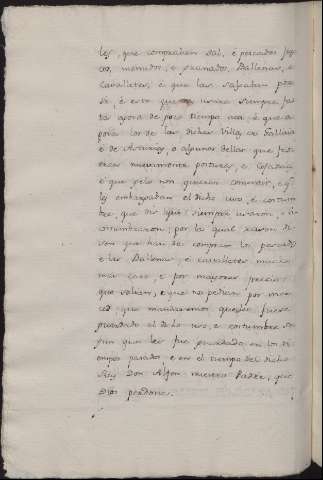 les, que compraban sal, e pescados fres
cos, menudos, e granados, Ballenas, e
Cavalletes; e que las sacaban por
e esto que usara siempre fas
ta agora de poco tiempo acá, e que a
gora los de las dichas Villas de Gallicia
e de Asturias o algunos dellos que
nuevamente posturas, e Cofadrias
e que pelo non quieren consentir, e q.
les embargaban el dicho uso, e costum
bre, que de siempre usaron, e a
costumbraron; por la qual razon di
son que han de comprar los pescados
e las Ballenas, e cavalletes mucho
mas caro, e por mayores precios
que solian, e que nos pedian por mer
ced que mandasemos que les fuese
guardado el dicho uso, e costumbre se
gun que les fue guardado en los ti
empos pasados, e en el tiempo del dicho
Rey Don Alfon nuestro Padre, que
Dios perdone.